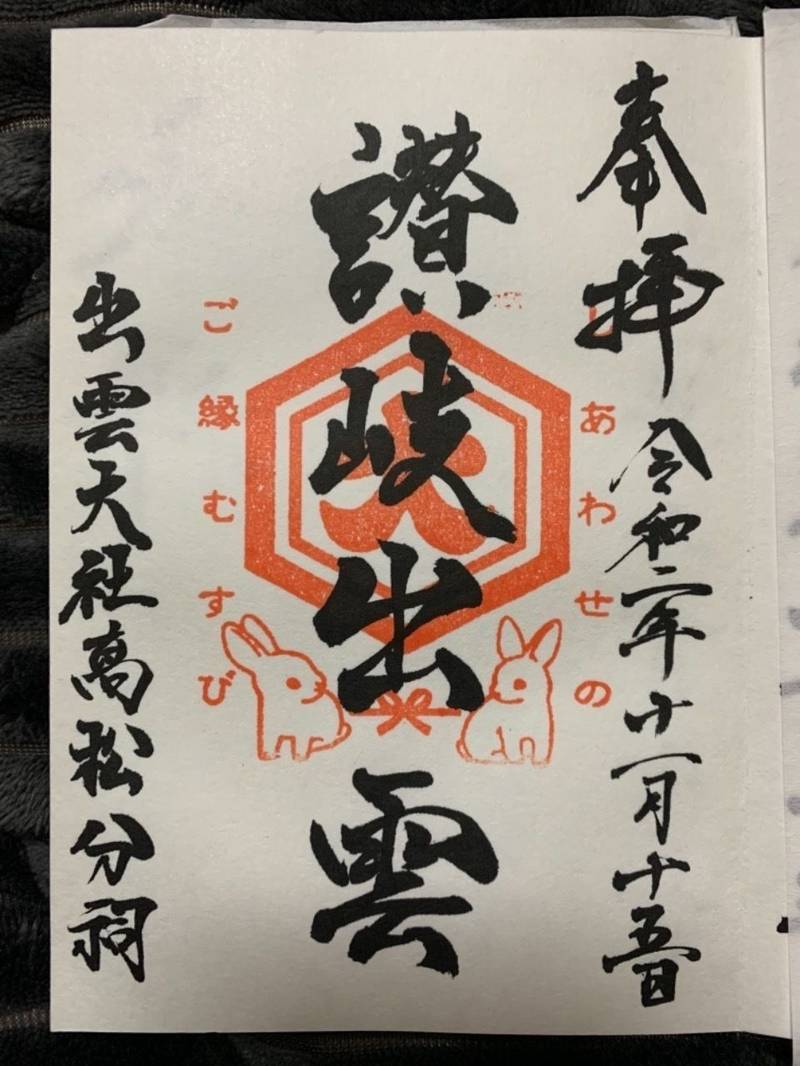 奉拝 令和二年十一月十五日
しあわせの
讃岐出雲
大
ご縁むすび
出雲大社高松分祠